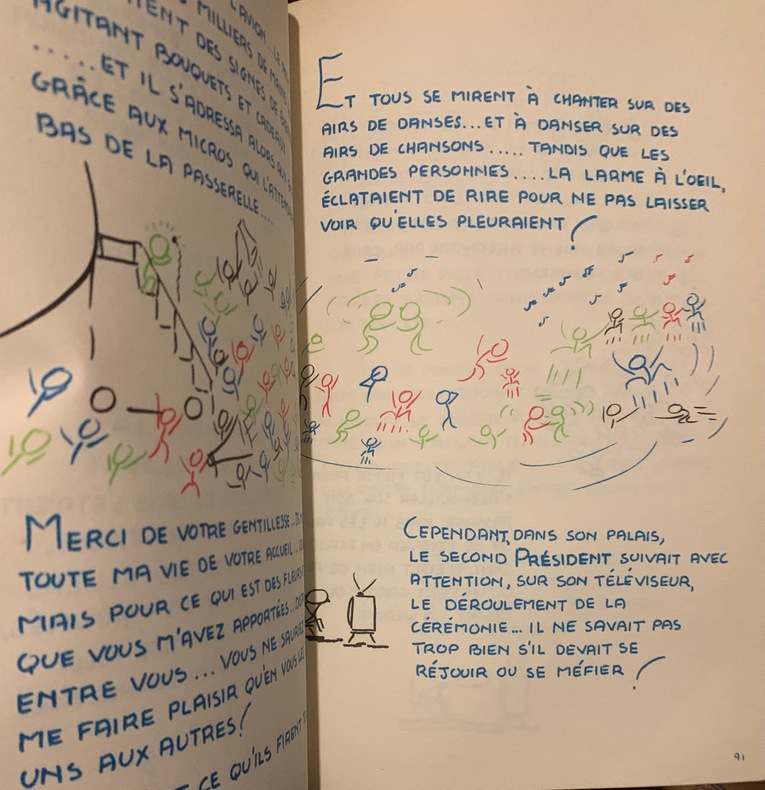 L'AVION...LE
MILLIERS DE MAINS
DES SIGNES DE
AGITANT BOUQUETS ET CADEAUX
.....ET IL S'ADRESSA ALORS
GRÂCE AUX MICROS QUI L'ATTENDAIENT
BAS DE LA PASSERELLE....
MERCI DE VOTRE GENTILLESSE...
TOUTE MA VIE DE VOTRE ACCUEIL...
MAIS POUR CE QUI EST DES FLEURS
QUE VOUS M'AVEZ APPORTÉES...
ENTRE VOUS... VOUS NE SAURIEZ
ME FAIRE PLAISIR QU'EN VOUS LES
UNS AUX AUTRES!
CE QU'ILS FIRENT
ET TOUS SE MIRENT À CHANTER SUR DES
AIRS DE DANSES...ET À DANSER SUR DES
AIRS DE CHANSONS..... TANDIS QUE LES
GRANDES PERSONNES....LA LARME À L'OEIL,
ÉCLATAIENT DE RIRE POUR NE PAS LAISSER
VOIR QU'ELLES PLEURAIENT!
CEPENDANT, DANS SON PALAIS,
LE SECOND PRÉSIDENT SUIVAIT AVEC
ATTENTION, SUR SON TÉLÉVISEUR,
LE DÉROULEMENT DE LA
CÉRÉMONIE... IL NE SAVAIT PAS
TROP BIEN S'IL DEVAIT SE
RÉJOUIR OU SE MÉFIER!
91